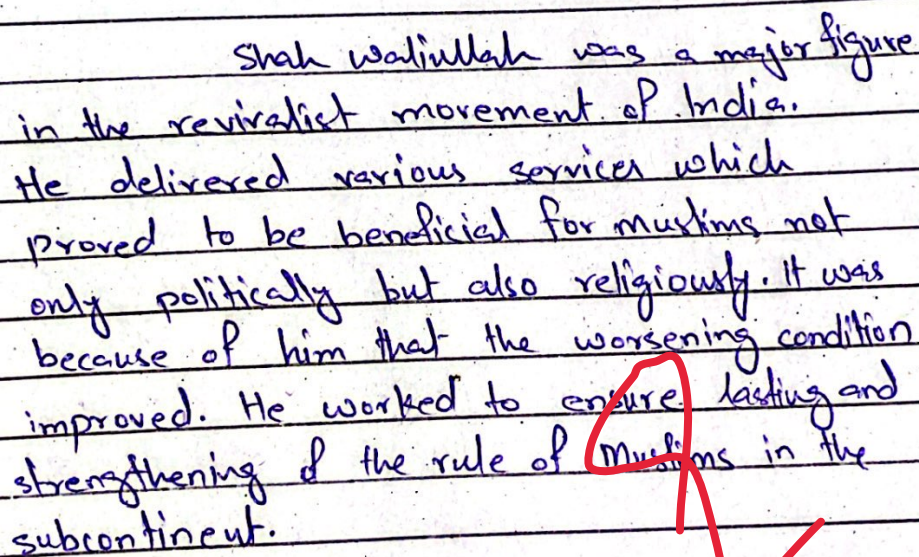 Shah Waliullah was a major figure
in the revivalist movement of India.
He delivered various services which
proved to be beneficial for muslims not
only politically but also religiously. It was
because of him that the worsening condition
improved. He worked to ensure lasting and
strengthening of the rule of Muslims in the
subcontinent.